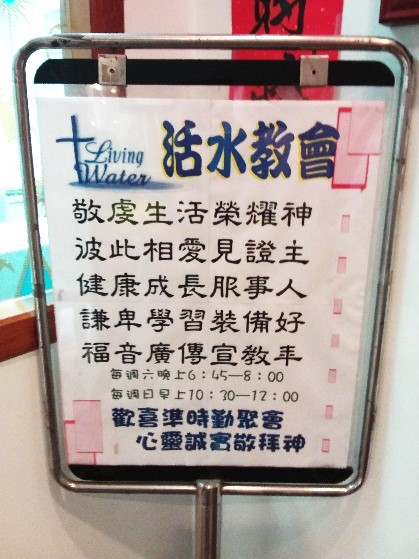 Living Water
活水教會
敬虔生活榮耀神
彼此相愛見證主
健康成長服事人
謙卑學習裝備好
福音廣傳宣教年
每週六晚上6:45—8:00
每週日早上10:30—12:00
歡喜準時勤聚會
心靈誠實敬拜神